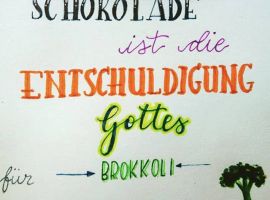 SCHOKOLADE
ist die
ENTSCHULDIGUNG
Gottes
für BROKKOLI